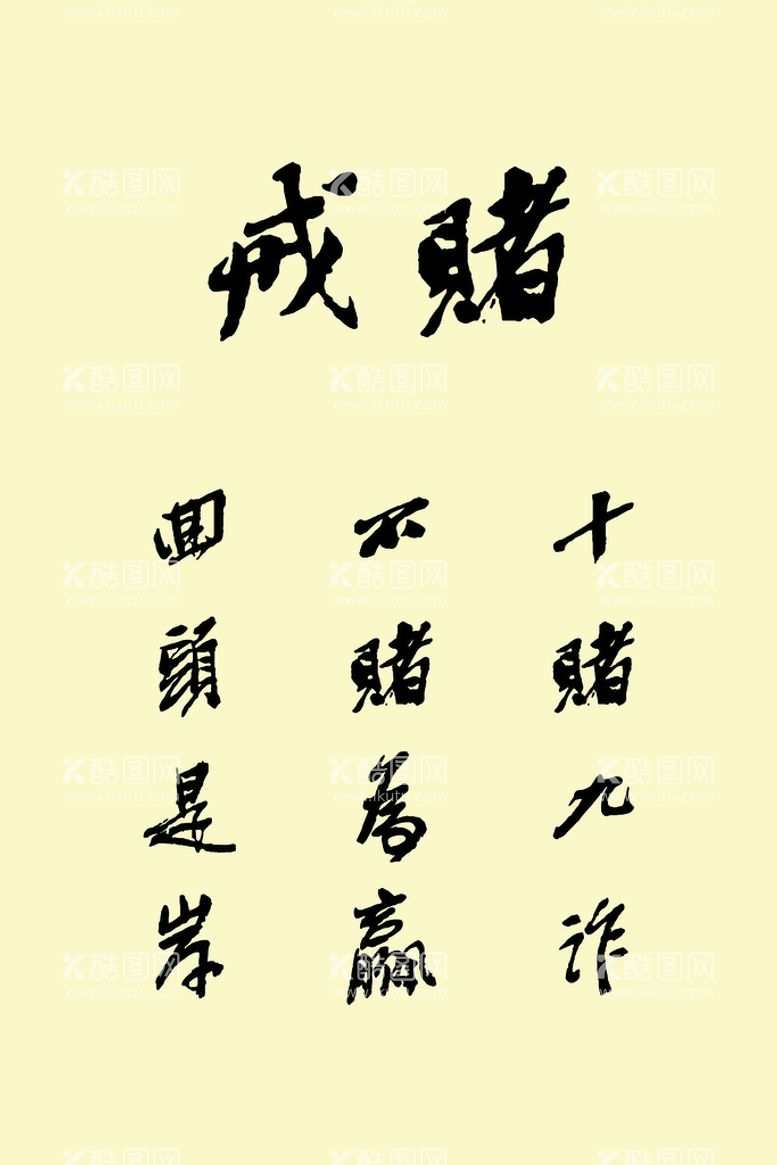 戒賭
十賭九诈
不賭為贏
回頭是岸
酷图网
www.ikutu.com